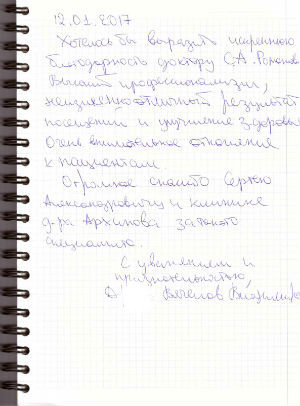 12.01.2017
Хотелось бы выразить искреннюю
благодарность доктору С.А.
Высший профессионализм,
неизменно отличный результат
посещений и улучшение здоровья
Очень внимательное отношение
к пациентам.
Огромное спасибо Сергею
Александровичу и клинике
д-ра Архипова за такого
специалиста.
С уважением и
признательностью,